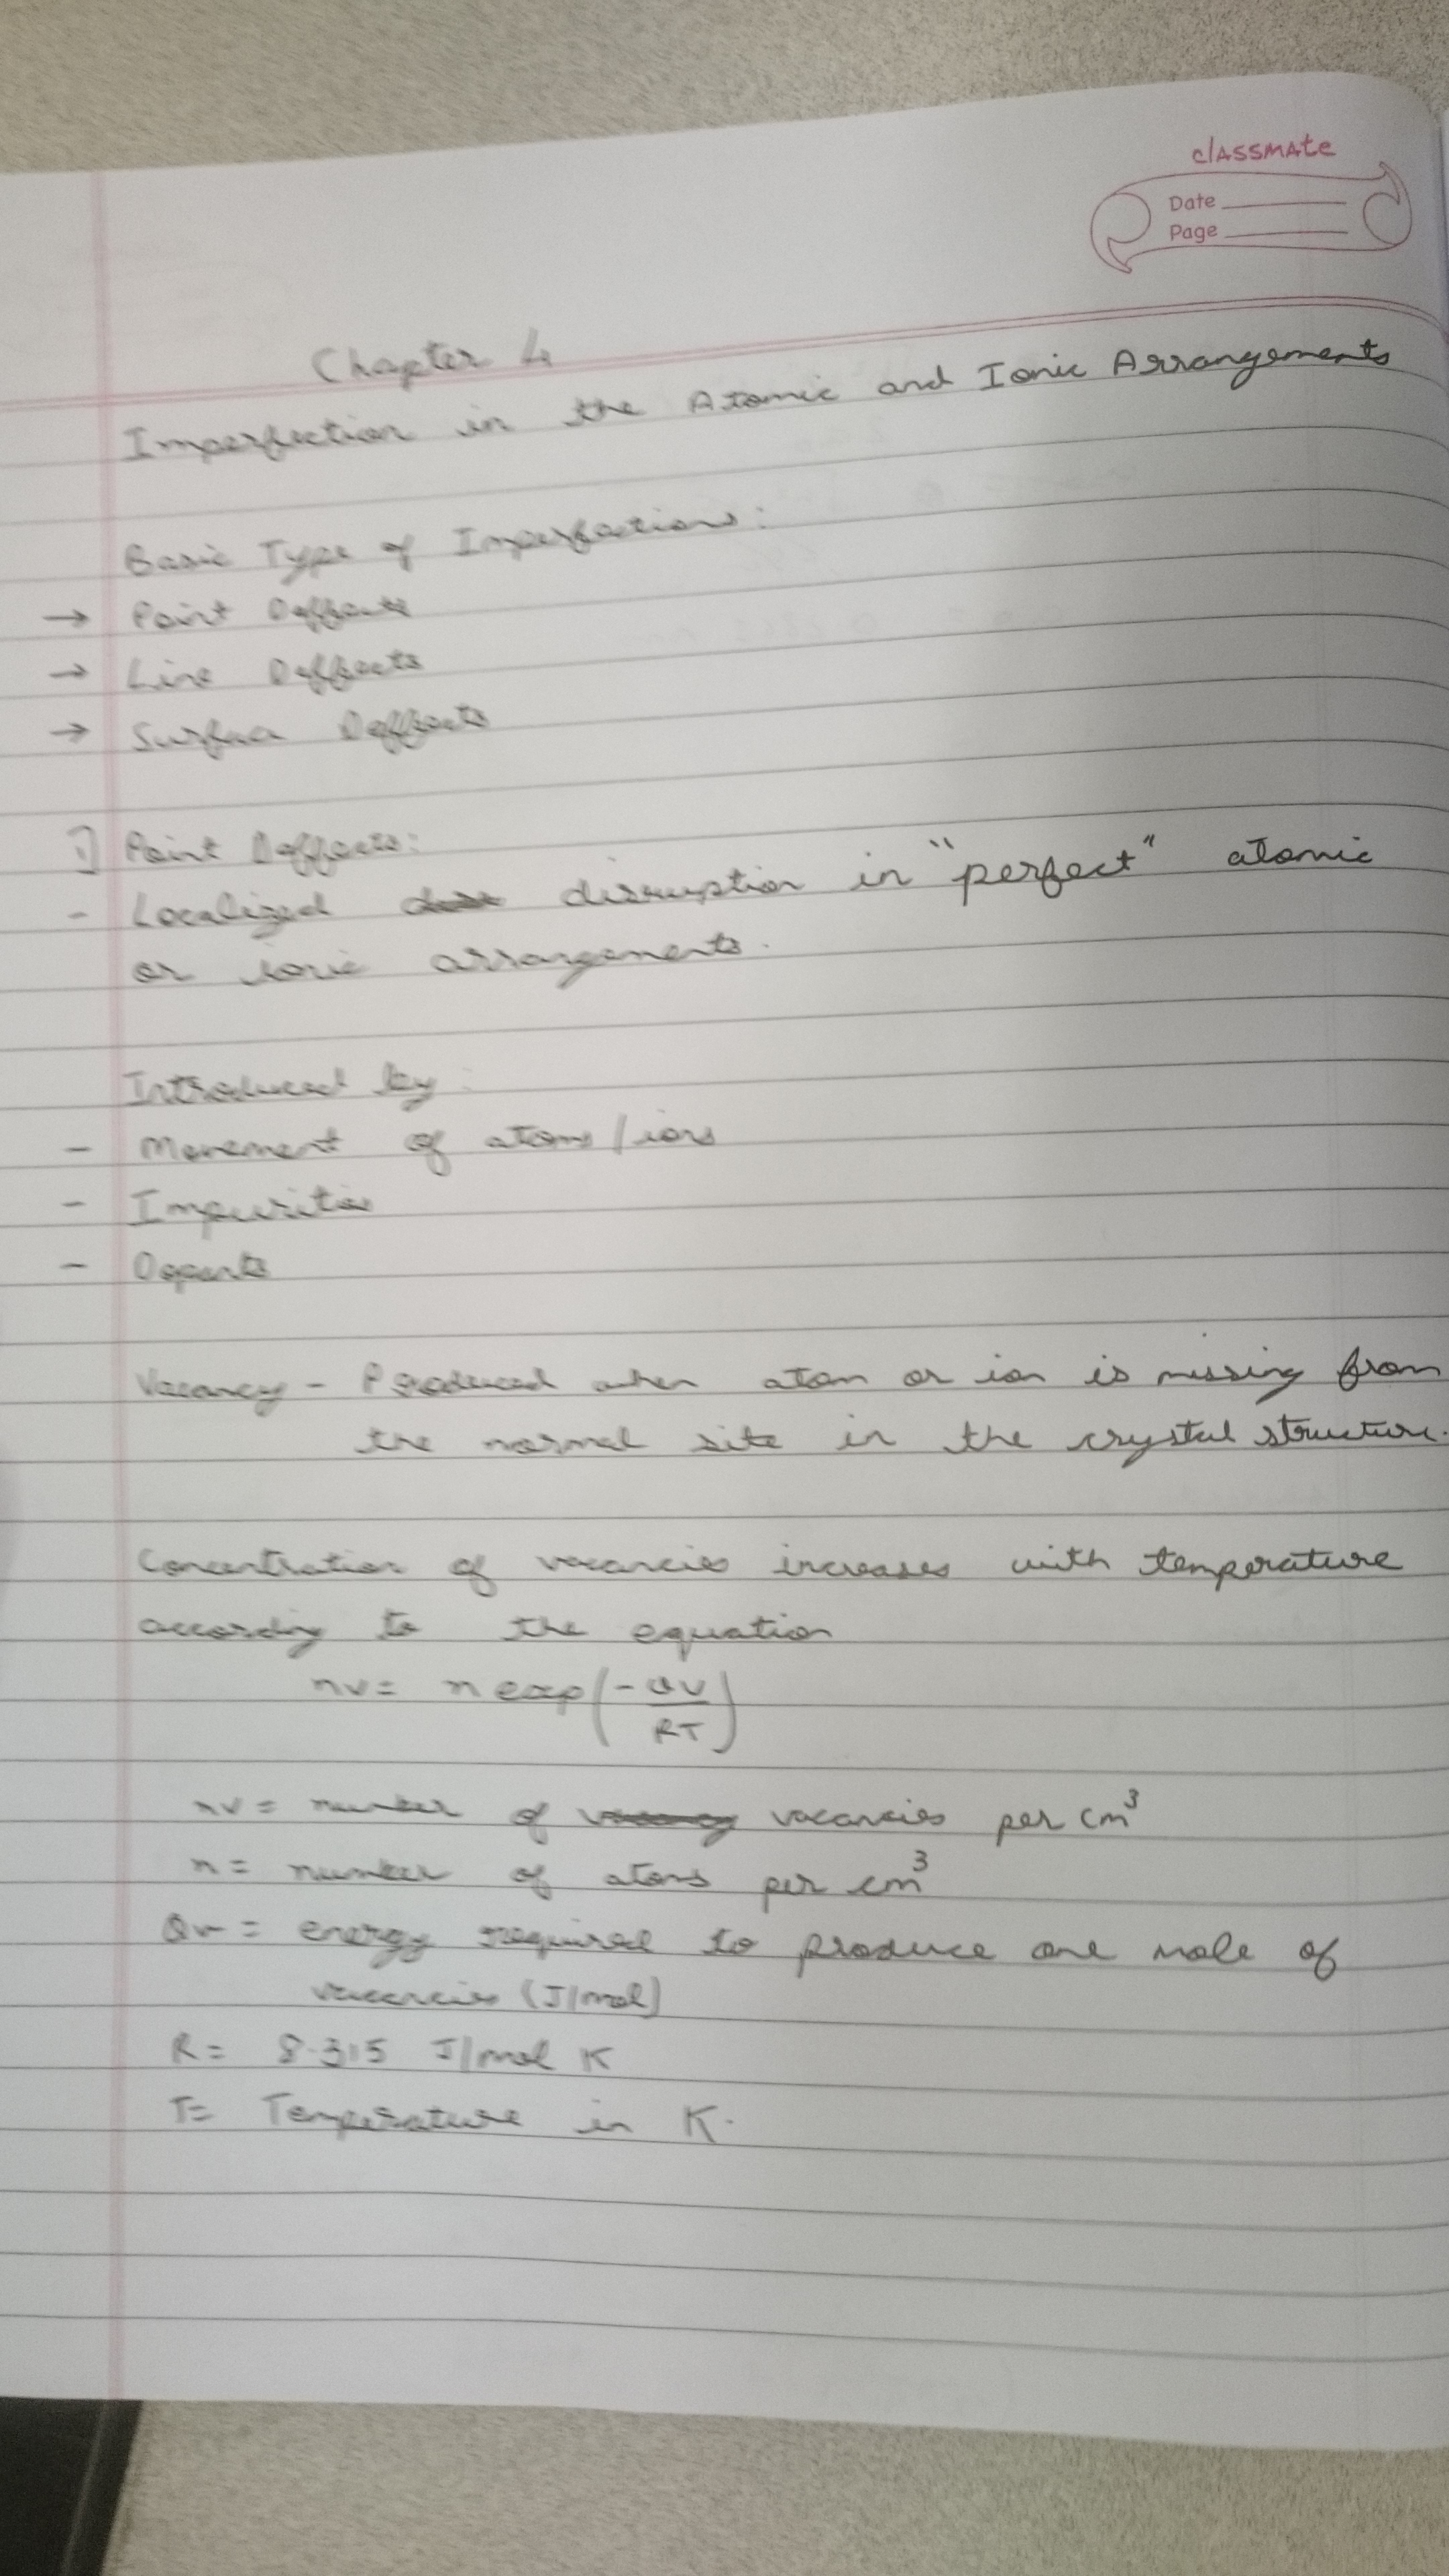 classmate
Date
Page
Chapter 4
Imperfection in the Atomic and Ionic Arrangements
Basic Type of Imperfections:
→ Point Deffects
→ Line Deffects
→ Surface Deffects
1) Point Deffects:
- Localized disruption in "perfect" atomic
or ionic arrangements.
Introduced by:
- Movement of atoms/ions
- Impurities
- Dopants
Vacancy - Produced when atom or ion is missing from
the normal site in the crystal structure.
Concentration of vacancies increases with temperature
according to the equation
nv = n exp(-QV/RT)
nv = number of vacancies per cm³
n = number of atoms per cm³
Qv = energy required to produce one mole of
vacancies (J/mol)
R = 8.315 J/mol K
T = Temperature in K.